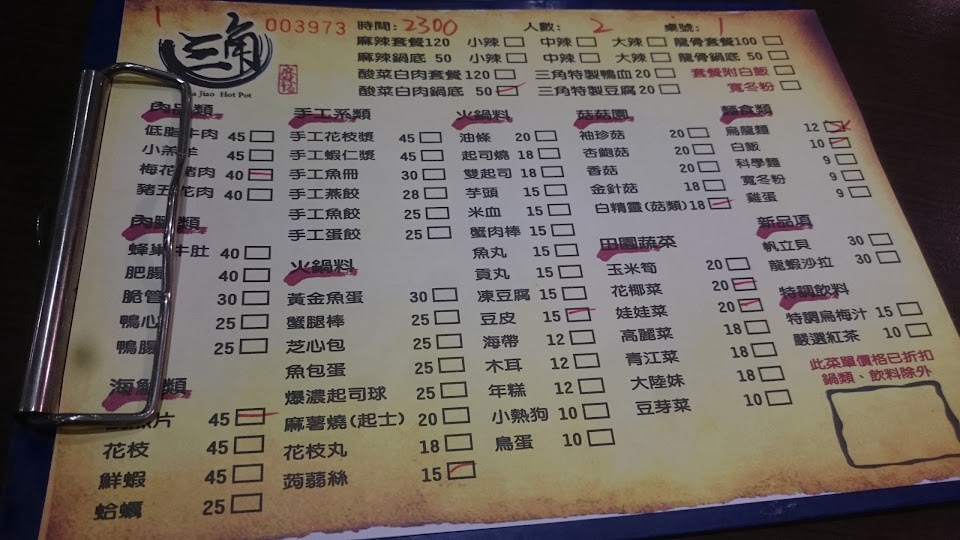 1
003973 時間:2300 人數:2 桌號:1
三角
Jiao Hot Pot
麻辣鍋
麻辣套餐120 小辣 中辣 大辣 龍骨套餐100
麻辣鍋底 50 小辣 中辣 大辣 龍骨鍋底 50
酸菜白肉套餐120 三角特製鴨血20 套餐附白飯
酸菜白肉鍋底 50 三角特製豆腐20 寬冬粉
肉品類
低脂牛肉 45
小羔羊 45
梅花豬肉 40
豬五花肉 40
肉臟類
蜂巢牛肚 40
肥腸 40
脆管 30
鴨心 25
鴨腸 25
海鮮類
片 45
花枝 45
鮮蝦 45
蛤蠣 25
手工系類
手工花枝漿 45
手工蝦仁漿 45
手工魚冊 30
手工燕餃 28
手工魚餃 25
手工蛋餃 25
火鍋料
黃金魚蛋 30
蟹腿棒 25
芝心包 25
魚包蛋 25
爆濃起司球 25
麻薯燒(起士) 20
花枝丸 18
蒟蒻絲 15
火鍋料
油條 20
起司燒 18
雙起司 18
芋頭 15
米血 15
蟹肉棒 15
魚丸 15
貢丸 15
凍豆腐 15
豆皮 15
海帶 12
木耳 12
年糕 12
小熱狗 10
鳥蛋 10
菇菇園
袖珍菇 20
杏鮑菇 20
香菇 20
金針菇 18
白精靈(菇類)18
田園蔬菜
玉米筍 20
花椰菜 20
娃娃菜 20
高麗菜 18
青江菜 18
大陸妹 18
豆芽菜 10
麵食類
烏龍麵 12
白飯 10
科學麵 9
寬冬粉 9
雞蛋 9
新品項
帆立貝 30
龍蝦沙拉 30
特調飲料
特調烏梅汁 15
嚴選紅茶 10
此菜單價格已折扣
鍋類、飲料除外